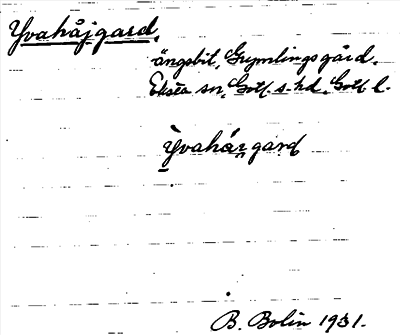 Yvahåjgard,
ängsbit, Grymlingsgård,
Eksta sn, Gotl. s. hd, Gotl. l.
Yvahárgard
B. Bolin 1931.